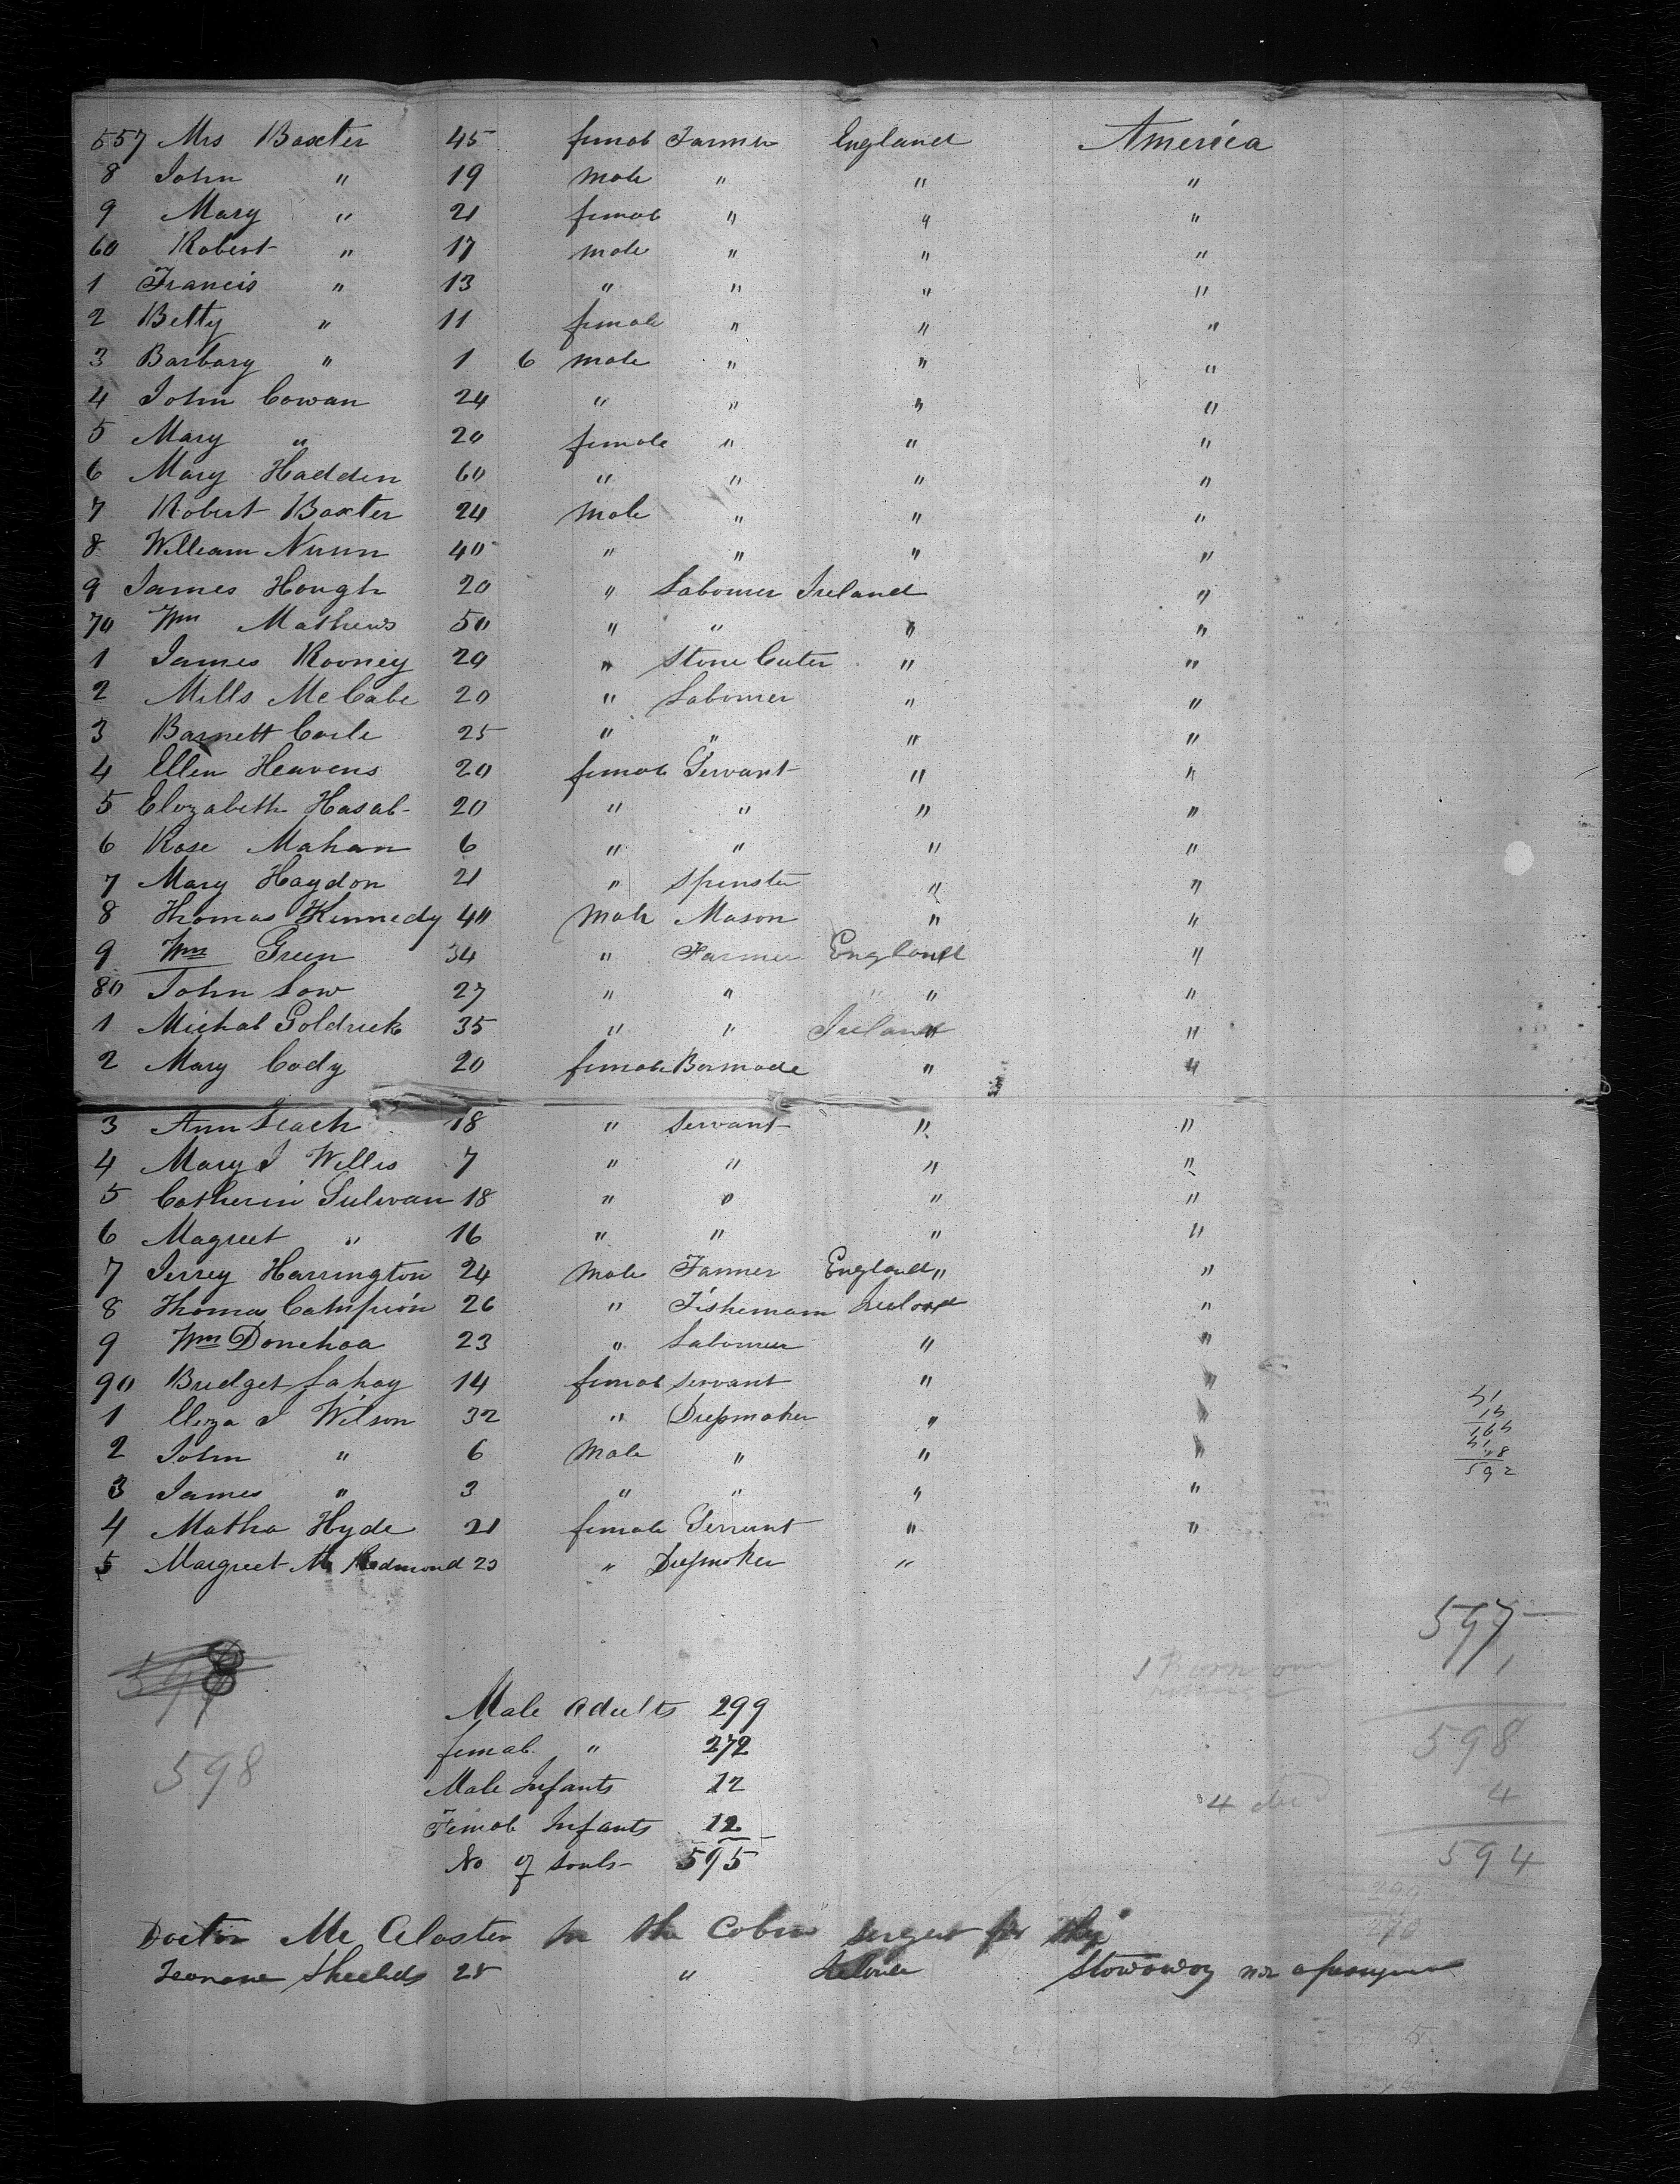 557 Mrs Baxter 45 female Farmer England America
8 John " 19 male " " "
9 Mary " 21 female " " "
60 Robert " 17 male " " "
1 Francis " 13 " " " "
2 Betty " 11 female " " "
3 Barbary " 1 6 male " " "
4 John Cowan 24 " " " "
5 Mary " 20 female " " "
6 Mary Hadden 60 " " " "
7 Robert Baxter 24 male " " "
8 William Nunn 40 " " " "
9 James Hough 20 " Labourer Ireland "
70 Wm Mathews 50 " " " "
1 James Rooney 20 " Stone Cuter " "
2 Mills McCabe 20 " Labourer " "
3 Barnett Coile 25 " " " "
4 Ellen Heavens 20 female Servant " "
5 Elozabeth Hasab 20 " " " "
6 Rose Mahan 6 " " " "
7 Mary Haydon 21 " Spinster " "
8 Thomas Kennedy 40 male Mason " "
9 Wm Green 34 " Farmer England "
80 John Low 27 " " " "
1 Michal Goldrick 35 " " Ireland "
2 Mary Cody 20 female " "
3 Ann Leach 18 " Servant " "
4 Mary J Willis 7 " " " "
5 Catherin Sulivan 18 " " " "
6 Magreet " 16 " " " "
7 Jerrey Harrington 24 male Farmer England " "
8 Thomas Campion 26 " Fishemam Ireland "
9 Wm Donehoa 23 " Labourer " "
90 Bridget Lahay 14 female servant " "
1 Eliza J Wilson 32 " Dressmaker " "
2 John " 6 male " " "
3 James " 3 " " " "
4 Matha Hyde 21 female Servant " "
5 Margreet Mc Redmond 23 " Dressmaker "
597
1 Born on passage 1
Male Adults 299
598
female " 272
598
Male Infants 12
4 died 4
Female Infants 12
No of souls 595
594
Doctor Mc in the Cabin for ship
Sheelds 28 " Ireland Stowaway not a passenger